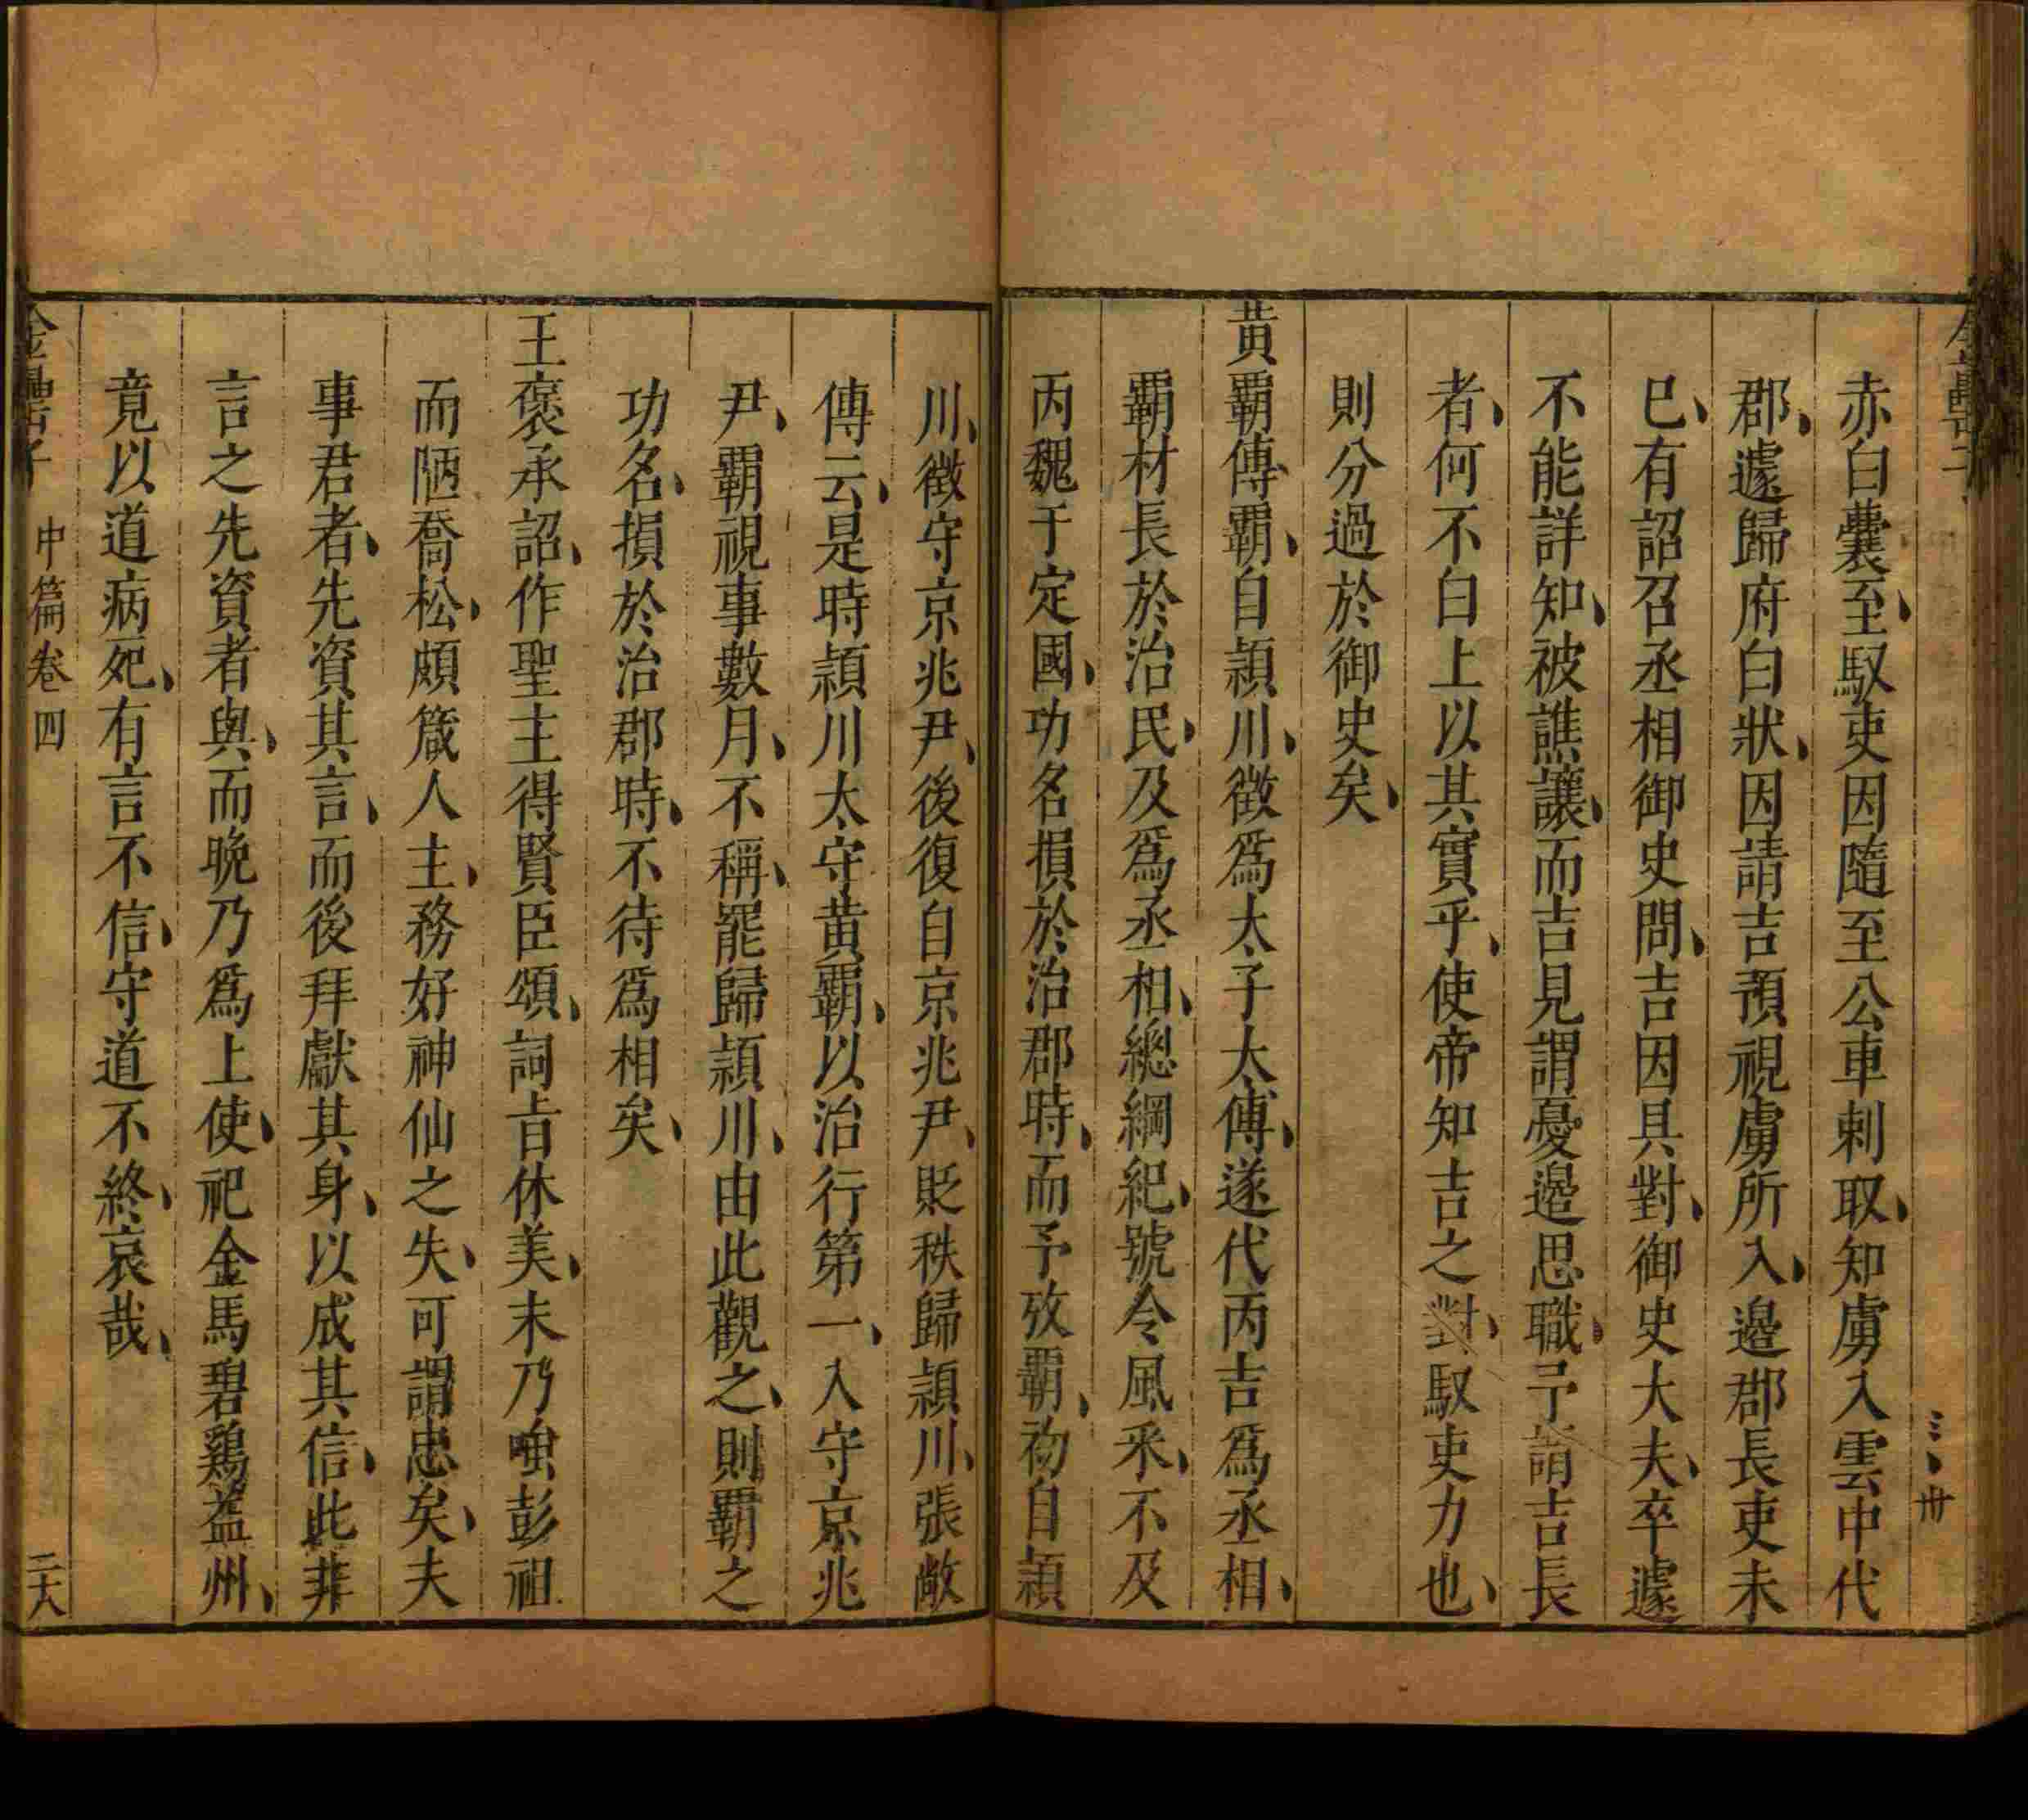 赤白囊至、馭吏因隨至公車刺取、知虜入雲中代
郡、遽歸府白狀、因請吉預視虜所入、邊郡長吏未
已、有詔召丞相御史問、吉因具對、御史大夫、卒遽
不能詳知、被譙讓、而吉見謂憂邊思職、予謂吉長
者、何不白上以其實乎、使帝知吉之對、馭吏力也、
則分過於御史矣、
黃霸傳、霸、自潁川、徵爲太子太傅、遂代丙吉爲丞相、
霸材長於治民、及爲丞相、總綱紀、號令風采、不及
丙魏于定國、功名損於治郡時、而予攷霸、初自潁
川、徵守京兆尹、後復自京兆尹、貶秩歸潁川、張敞
傳云、是時潁川太守黃霸、以治行第一、入守京兆
尹、霸視事數月、不稱、罷歸潁川、由此觀之、則霸之
功名、損於治郡時、不待爲相矣、
王褒承詔、作聖主得賢臣頌、詞旨休美、末乃嗤彭祖
而陋喬松、頗箴人主、務好神仙之失、可謂忠矣、夫
事君者、先資其言、而後拜獻其身、以成其信、此非
言之先資者與、而晚乃爲上使、祀金馬碧鷄益州、
竟以道病死、有言不信、守道不終、哀哉、
金罍子 中篇卷四 二大